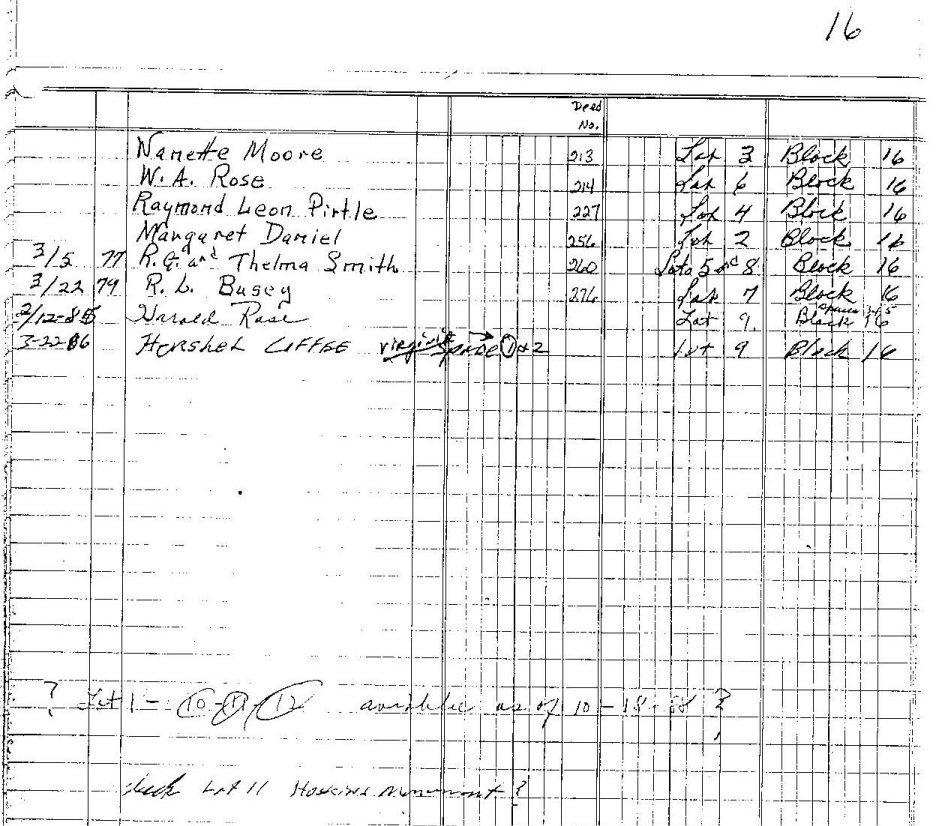 16
Deed
No.
Nanette Moore 213 Lot 3 Block 16
W. A. Rose 214 Lot 6 Block 16
Raymond Leon Pirtle 227 Lot 4 Block 16
Margaret Daniel 256 Lot 2 Block 16
3/5 77 R. G. and Thelma Smith 260 Lots 5 and 8 Block 16
3/22 79 R. L. Busey 276 Lot 7 Block 16
2/12-85 Harold Rose Lot 9. Block 16
3-22 86 Hershel virginia space 1 & 2 Lot 9 Block 16
? Lot 1 - 10 - 11 - 12 available as of 10-18-88 ?
check Lot 11 Hoskins Monument ?